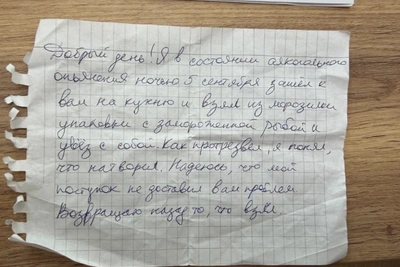 Добрый день! Я в состоянии алкогольного
опьянения ночью 5 сентября зашёл к
вам на кухню и взял из морозилки
упаковки с замороженной рыбой и
увёз с собой. Как протрезвел, я понял,
что натворил. Надеюсь, что мой
поступок не доставил вам проблем
Возвращаю назад то, что взял